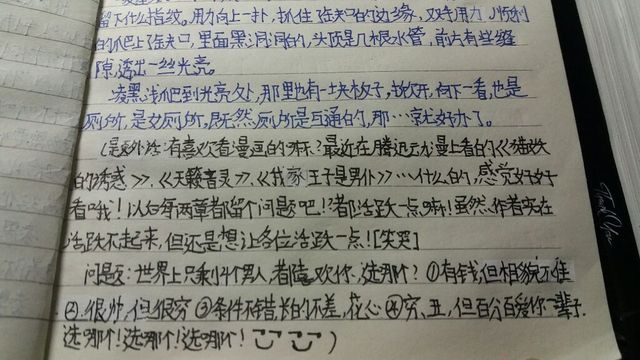 留下什么指纹。用力向上一扑，抓住了缺口的边缘，双手用力，顺利
的爬上了缺口，里面黑洞洞的，头顶是几根水管，前方有些缝
隙，透出一丝光亮。
凌黑浅爬到光亮处，那里也有一块板子，掀开，向下一看，也是
厕所，是女厕所，既然厕所是互通的，那…就好办了。
（题外话：有喜欢看漫画的嘛？最近在腾迅动漫上看的《猫跌
的诱惑》、《天籁音灵》、《我家王子是男仆》…什么的，感觉好好
看哦！以后每两章都留个问题吧！都活跃一点嘛！虽然作者实在
活跃不起来，但还是想让各位活跃一点！[笑哭]
问题：世界上只剩4个男人，都喜欢你，选哪个？①有钱，但相貌
②很帅，但很穷③条件不错，长的不差，花心④穷、丑，但百分百爱你一辈子.
选哪个！选哪个！选哪个！）
Thank You